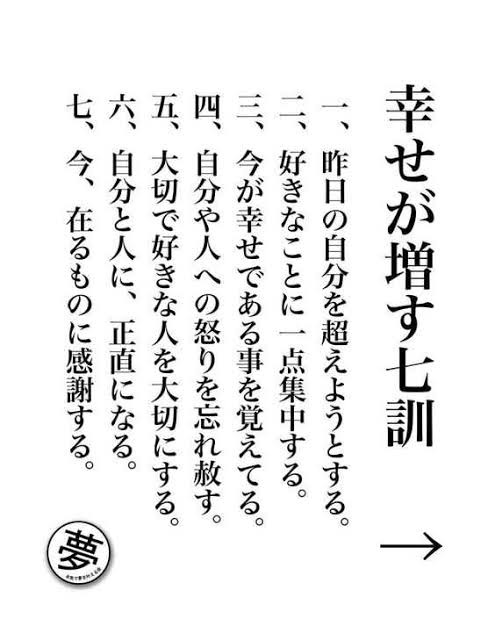 幸せが増す七訓
→
一、昨日の自分を超えようとする。
二、好きなことに一点集中する。
三、今が幸せである事を覚えてる。
四、自分や人への怒りを忘れ赦す。
五、大切で好きな人を大切にする。
六、自分と人に、正直になる。
七、今、在るものに感謝する。
夢